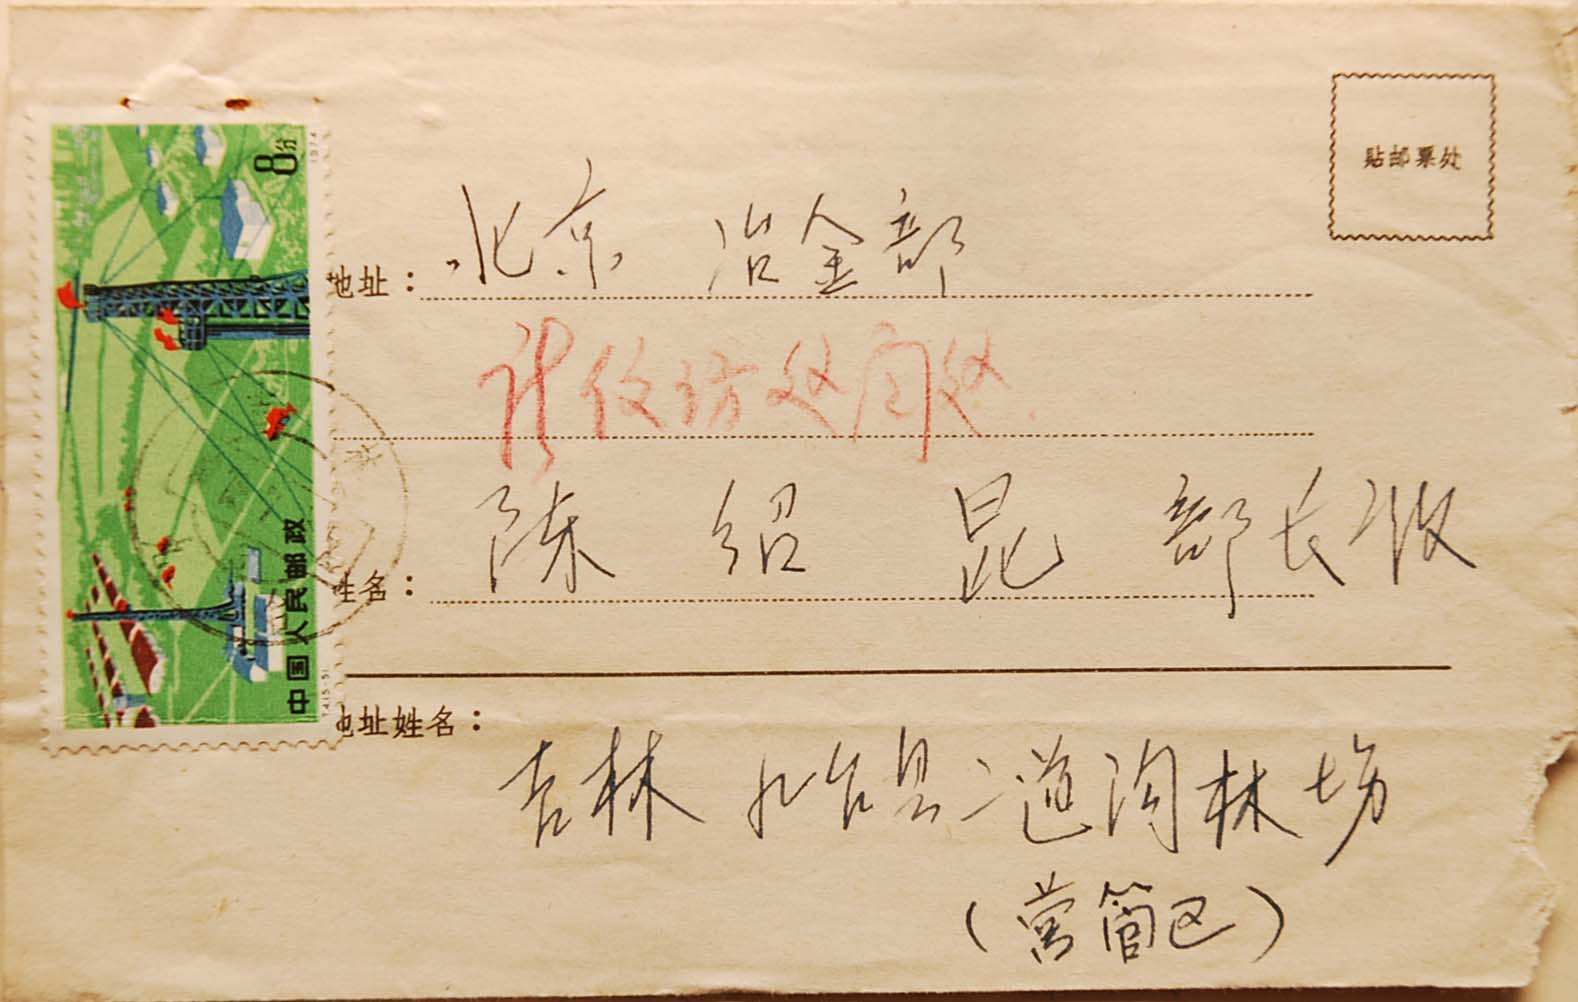 贴邮票处
8分
1974
中国人民邮政
T.4(5-5)
地址：北京 冶金部
姓名：陈绍昆部长收
地址姓名：
吉林 九台县二道沟林场
(营管区)